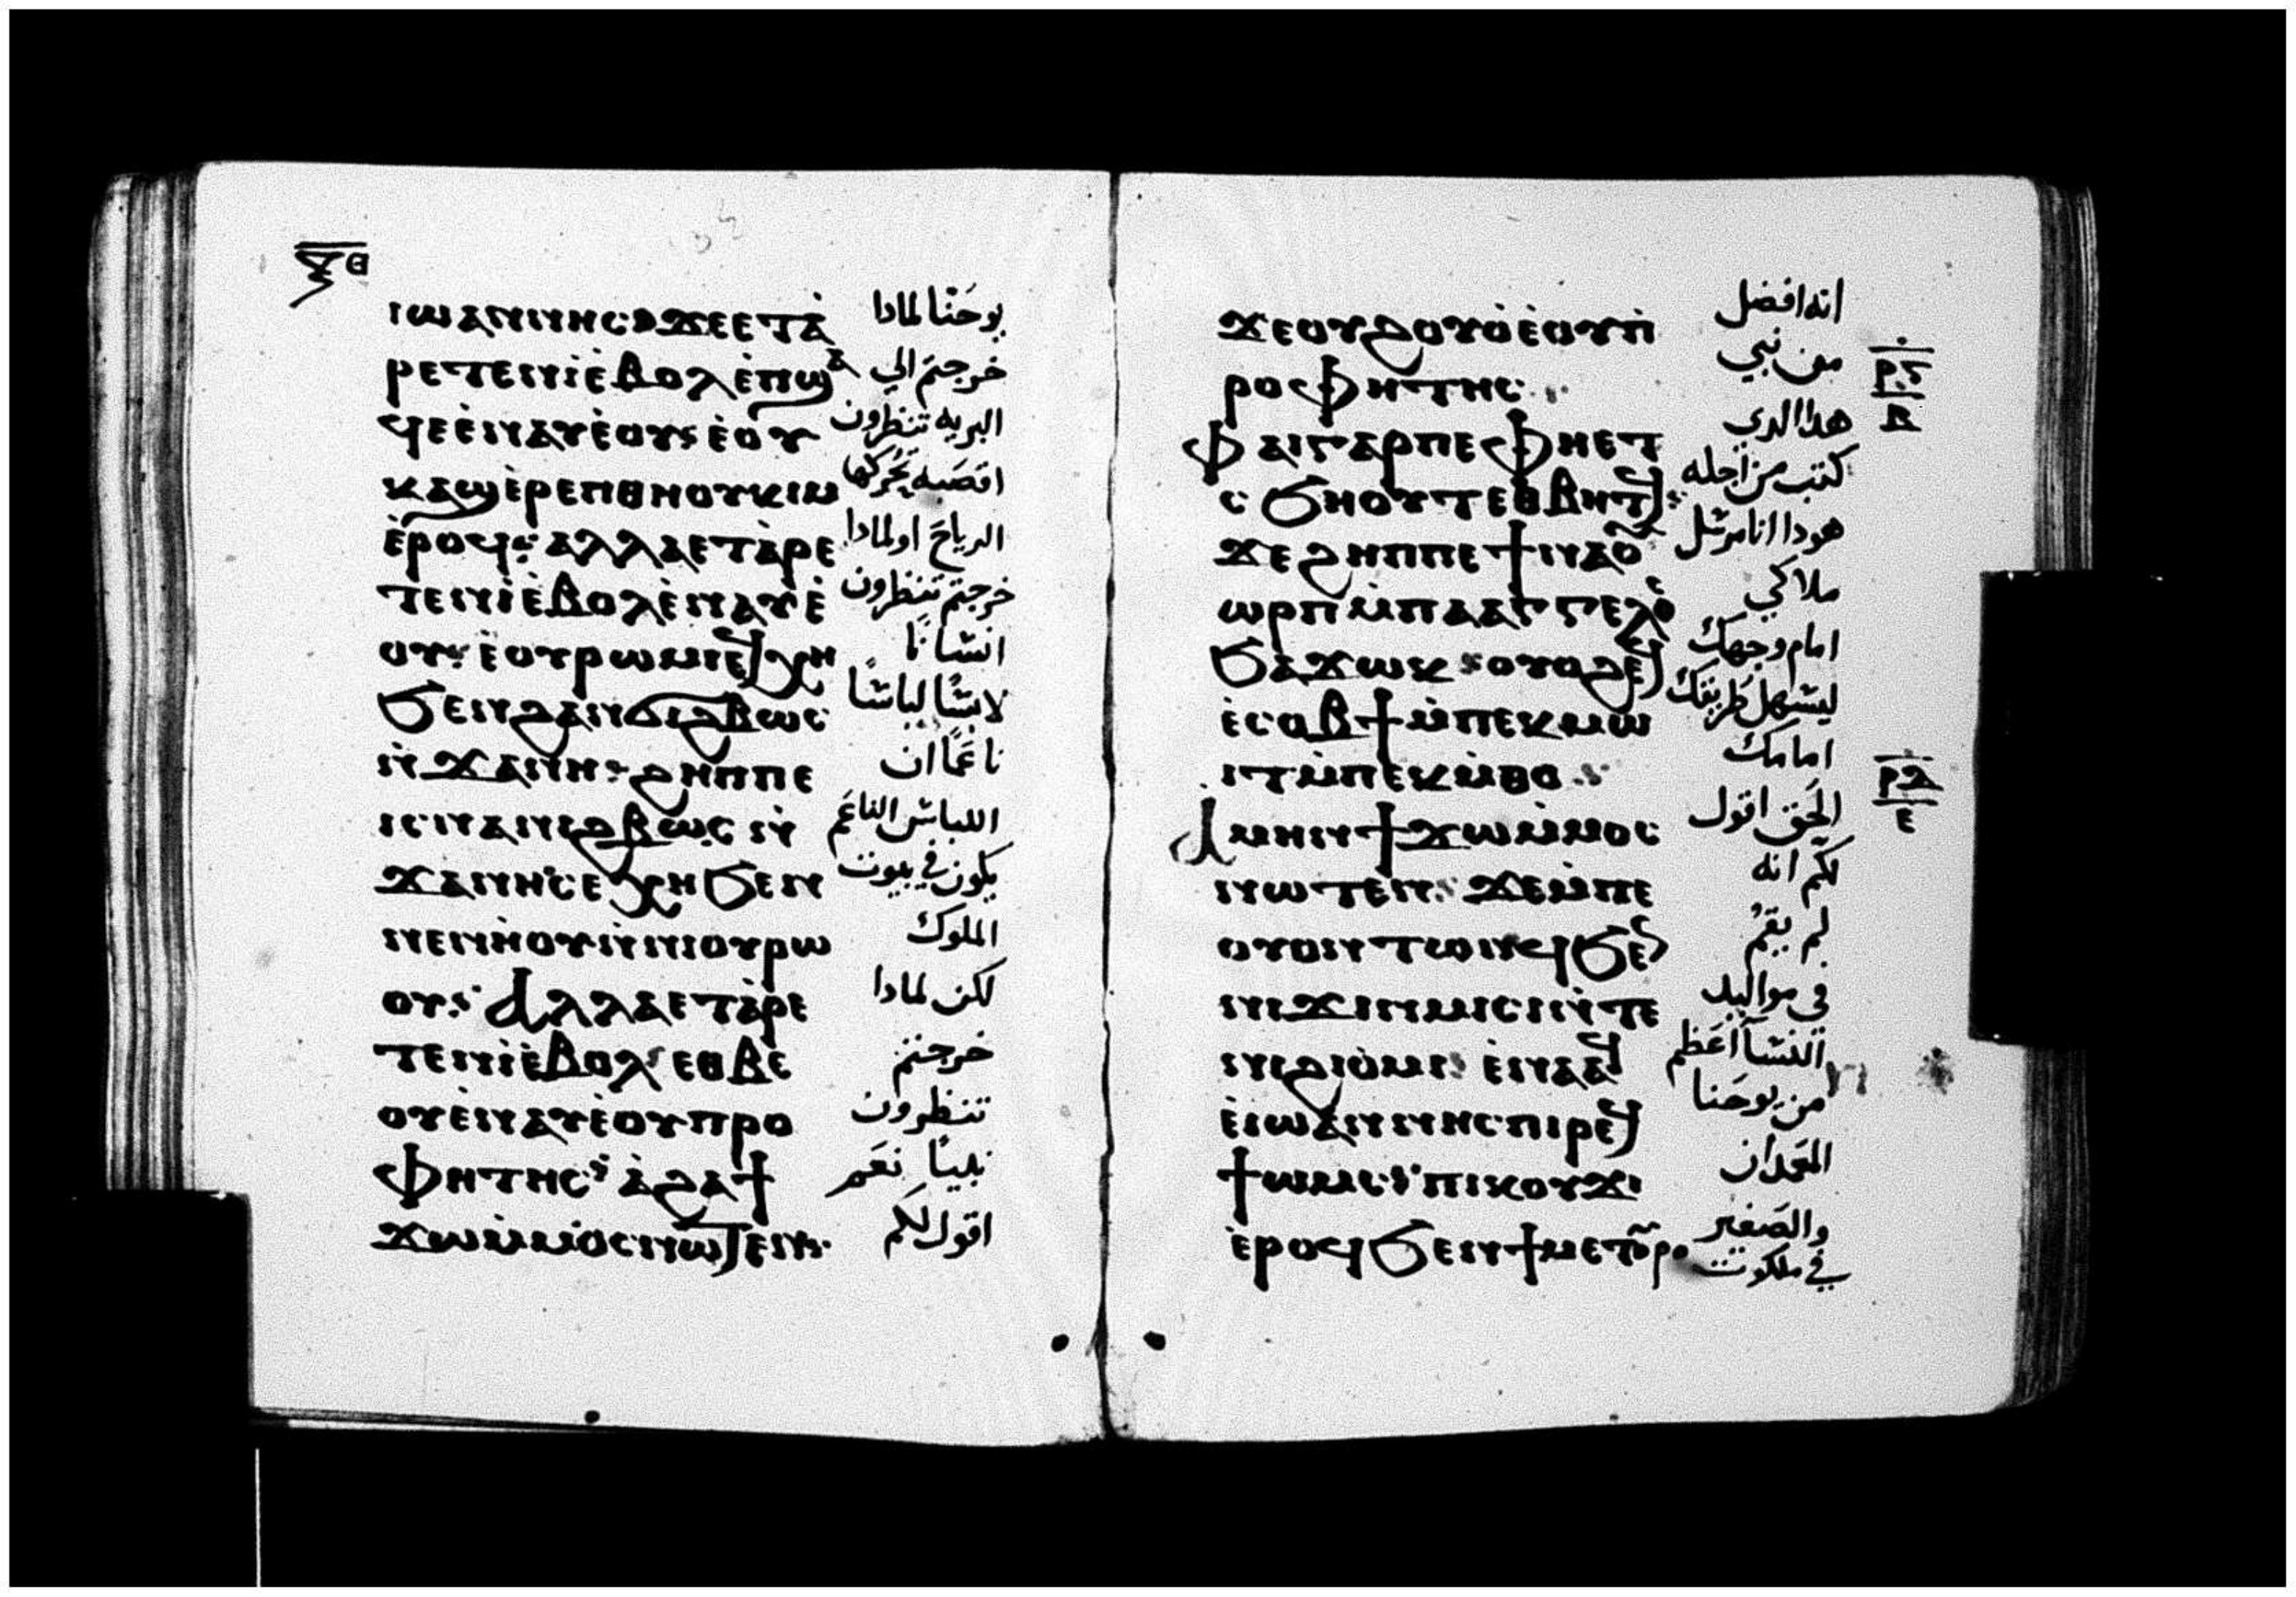 ⲝ̅ⲑ
ⲓⲱⲁⲛⲛⲏⲥ ϫⲉ ⲉⲧⲁ̀ يوحنا لمادا
ⲣⲉⲧⲉⲛⲓ̀ ⲉ̀ⲃⲟⲗ ⲉ̀ⲡϣⲁ خرجتم الي
ϥⲉ ⲉ̀ⲛⲁⲩ ⲉ̀ⲟⲩ ⲉ̀ⲟⲩ البريه تنظرون
ⲕⲁϣ ⲉ̀ⲣⲉ ⲡⲑⲏⲟⲩ ⲕⲓⲙ اقصبه تحركها
ⲉ̀ⲣⲟϥ ⲁⲗⲗⲁ ⲉⲧⲁ̀ⲣⲉ الرياح او لمادا
ⲧⲉⲛⲓ̀ ⲉ̀ⲃⲟⲗ ⲉ̀ⲛⲁⲩ ⲉ̀ خرجتم تنظرون
ⲟⲩ ⲉ̀ⲟⲩⲣⲱⲙⲓ ⲉϥⲭⲏ انسانًا
ϧⲉⲛ ϩⲁⲛϩⲃⲱⲥ لابسًا لباسًا
ⲛ̀ϫⲁⲛⲏ ϩⲏⲡⲡⲉ ناعمًا ان
ⲓⲥ ⲛⲁ ⲛⲓϩⲃⲱⲥ ⲛ̀ اللباس الناعم
ϫⲁⲛⲏ ⲥⲉⲭⲏ ϧⲉⲛ يكون في بيوت
ⲛⲉⲛⲏⲟⲩ ⲛ̀ⲛⲓⲟⲩⲣⲱ الملوك
ⲟⲩ ⲁⲗⲗⲁ ⲉⲧⲁ̀ⲣⲉ لكن لمادا
ⲧⲉⲛⲓ̀ ⲉ̀ⲃⲟⲗ ⲉⲑⲃⲉ خرجتم
ⲟⲩ ⲉ̀ⲛⲁⲩ ⲉ̀ⲟⲩⲡⲣⲟ تنظرون
ⲫⲏⲧⲏⲥ ⲁ̀ϩⲁ ϯ نبيًا نعم
ϫⲱ ⲙ̀ⲙⲟⲥ ⲛⲱⲧⲉⲛ اقول لكم
ϫⲉ ⲟⲩϩⲟⲩⲟ̀ ⲉ̀ⲟⲩⲡ̀ انه افضل
ⲣⲟⲫⲏⲧⲏⲥ من نبي
ⲫⲁⲓ ⲅⲁⲣ ⲡⲉ ⲫⲏⲉⲧ هدا الدي
ⲥϧⲏⲟⲩⲧ ⲉⲑⲃⲏⲧϥ كتب من اجله
ϫⲉ ϩⲏⲡⲡⲉ ϯⲛⲁⲟⲩ هودا انا مرسل
ⲱⲣⲡ ⲙ̀ⲡⲁⲁⲅⲅⲉⲗⲟⲥ ملاكي
ϧⲁϫⲱⲕ ⲟⲩⲟϩ ⲉϥ امام وجهك
ⲉ̀ⲥⲟⲃϯ ⲙ̀ⲡⲉⲕⲙⲱ ليسهل طريقك
ⲓⲧ ⲙ̀ⲡⲉⲕⲙ̀ⲑⲟ امامك
ⲁⲙⲏⲛ ϯϫⲱ ⲙ̀ⲙⲟⲥ الحق اقول
ⲛⲱⲧⲉⲛ ϫⲉ ⲙ̀ⲡⲉ لكم انه
ⲟⲩⲟⲛ ⲧⲱⲛϥ ϧⲉⲛ لم يقم
ⲛⲓϫⲓⲛⲙⲓⲥⲓ ⲛ̀ⲧⲉ في مواليد
ⲛⲓϩⲓⲟ̀ⲙⲓ ⲉ̀ⲛⲁⲁϥ النسا اعظم
ⲉ̀ⲓⲱⲁⲛⲛⲏⲥ ⲡⲓⲣⲉϥ من يوحنا
ϯⲱⲙⲥ ⲡⲓⲕⲟⲩϫⲓ المعمدان
ⲉ̀ⲣⲟϥ ϧⲉⲛ ϯⲙⲉⲧⲟⲩⲣⲟ والصغير في ملكوت
ⲣⲇ
ⲉ